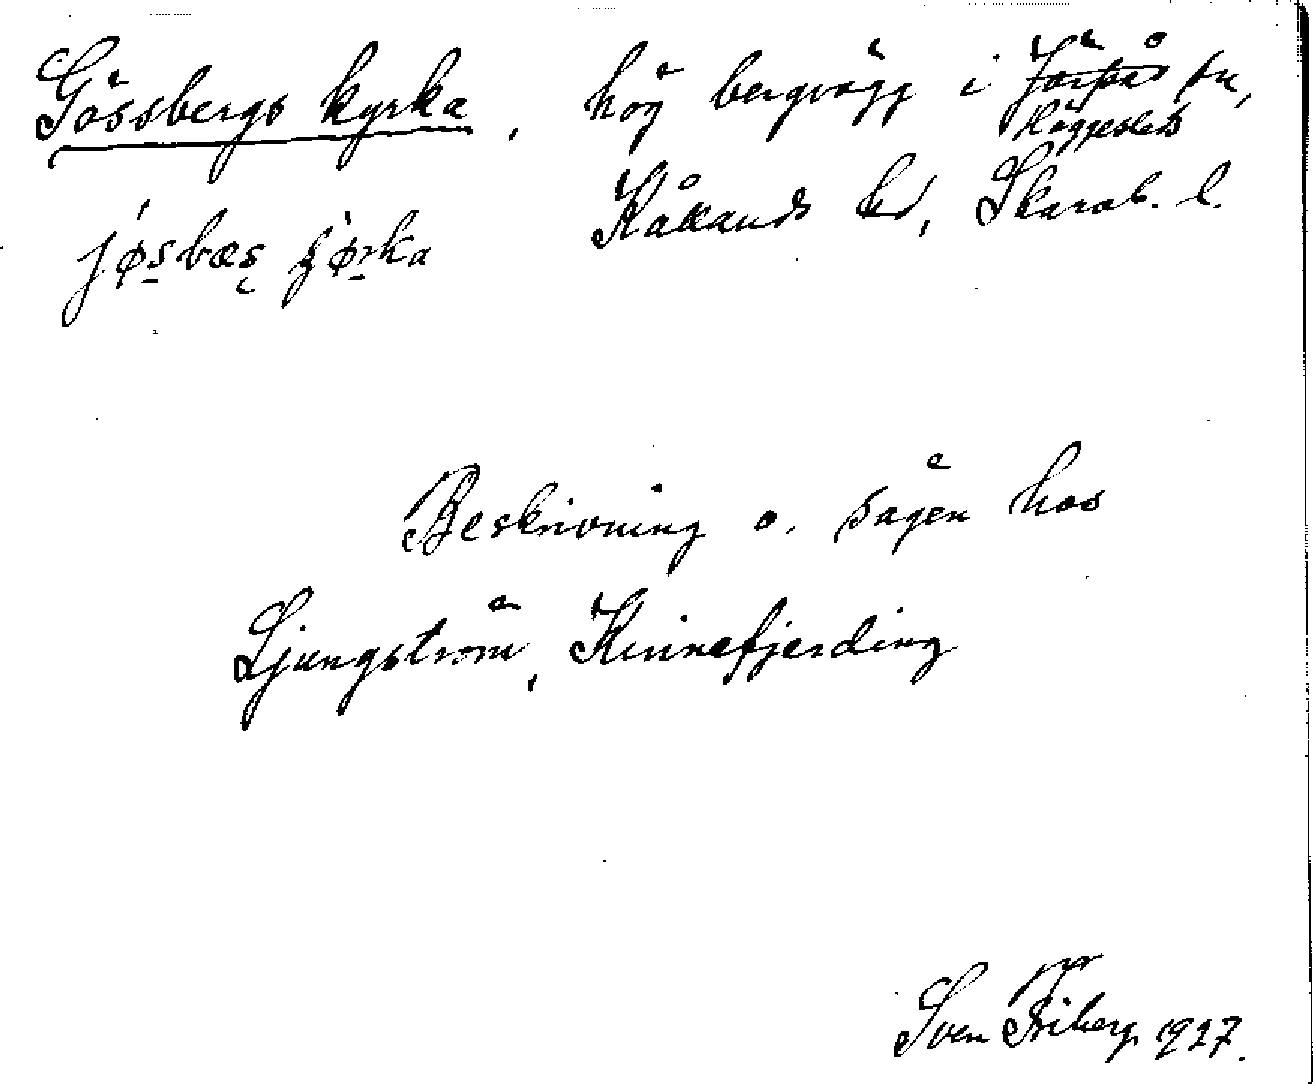 Gössbergs kyrka, hög bergvägg i Järpås sn,
Häggesleds
Kållands hd, Skarab. l.
Beskrivning o. sägen hos
Ljungström, Kinnefjerding
Sven Friberg 1927.